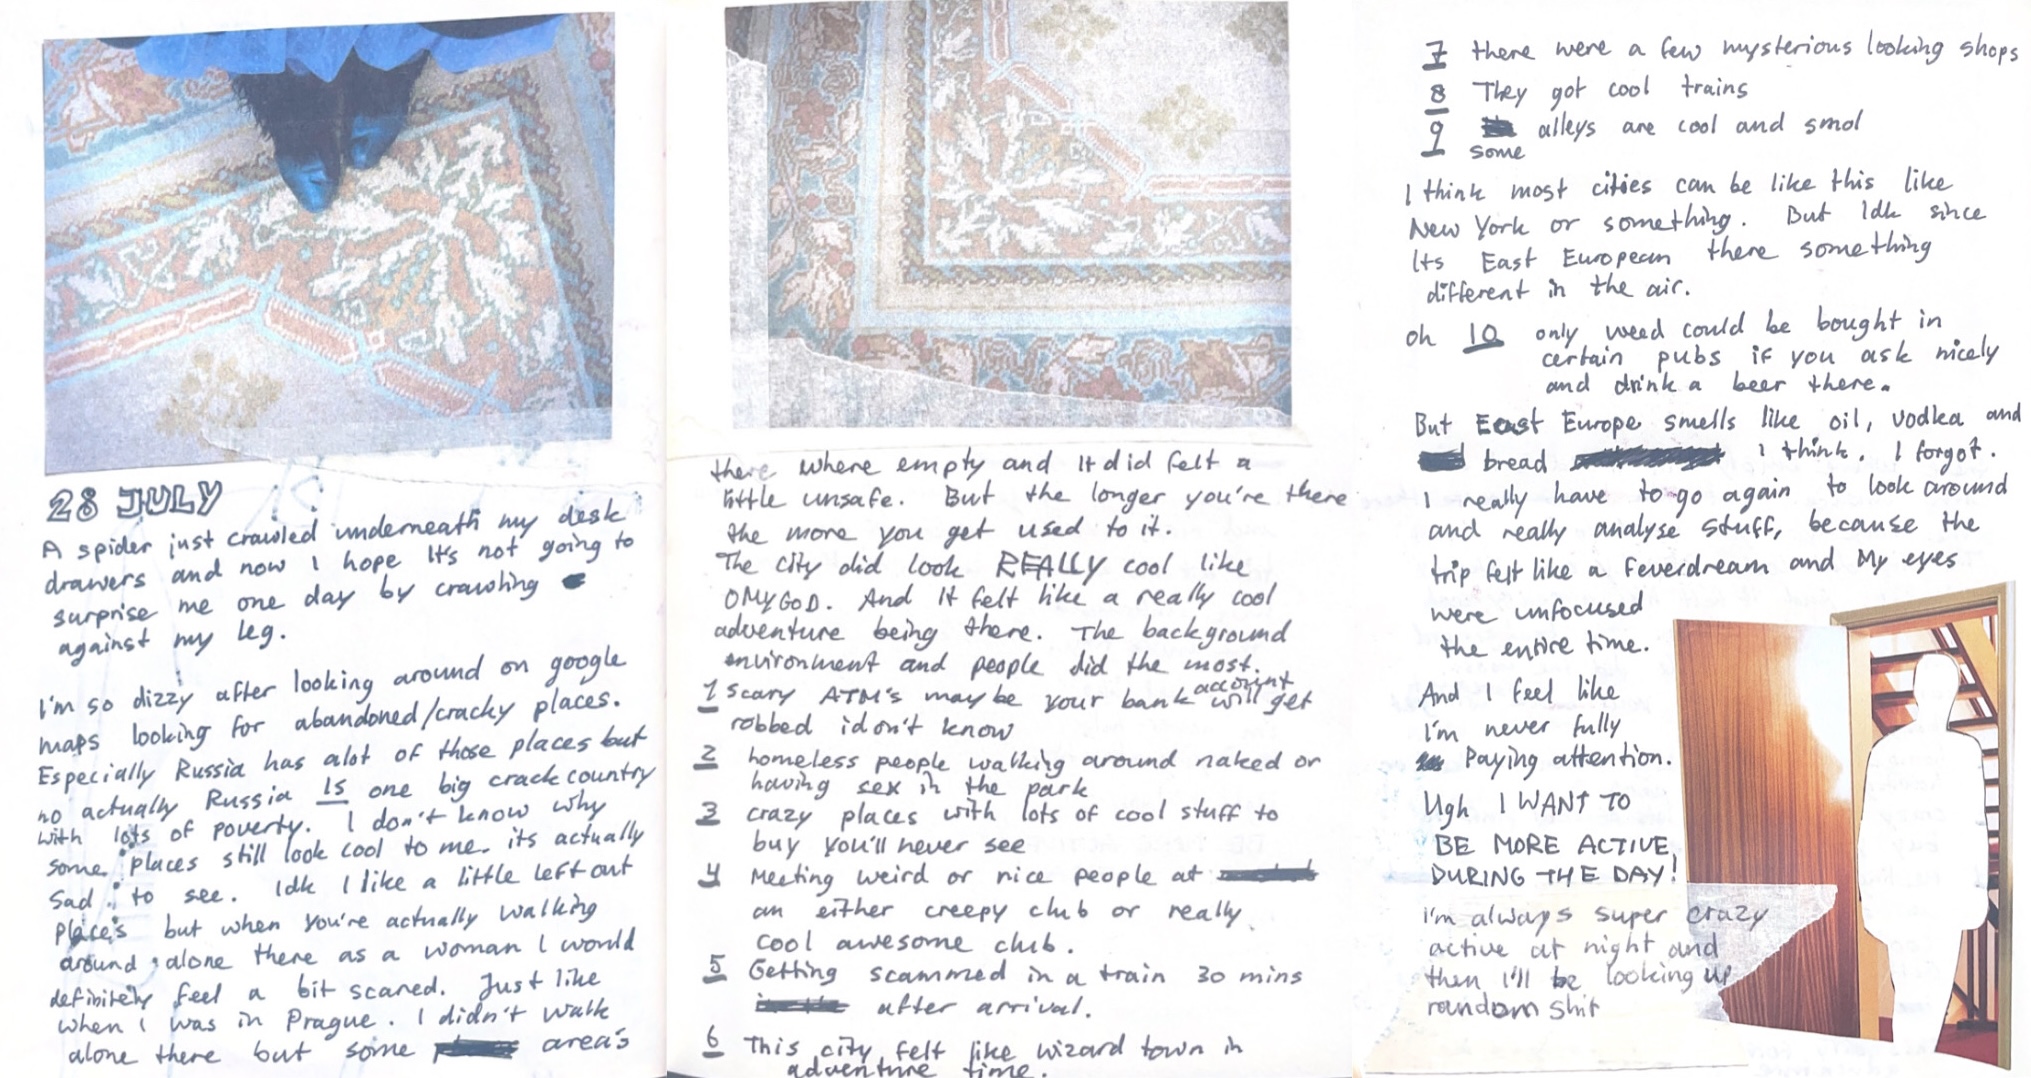 28 JULY
A spider just crawled underneath my desk
drawers and now I hope It's not going to
surprise me one day by crawling
against my leg.
I'm so dizzy after looking around on google
maps looking for abandoned/cracky places.
Especially Russia has alot of those places but
no actually Russia IS one big crack country
with lots of poverty. I don't know why
some places still look cool to me. its actually
Sad to see. Idk I like a little left out
places but when you're actually walking
around alone there as a woman I would
definitely feel a bit scared. Just like
when I was in Prague. I didn't walk
alone there but some area's
there where empty and It did felt a
little unsafe. But the longer you're there
the more you get used to it.
The city did look REALLY cool like
OMYGOD. And It felt like a really cool
adventure being there. The background
environment and people did the most.
1 Scary ATM's maybe your bank account will get
robbed idon't know
2 homeless people walking around naked or
having sex in the park
3 crazy places with lots of cool stuff to
buy you'll never see
4 Meeting weird or nice people at
an either creepy club or really
cool awesome club.
5 Getting scammed in a train 30 mins
after arrival.
6 This city felt like wizard town in
adventure time.
7 there were a few mysterious looking shops
8 They got cool trains
9 some alleys are cool and smol
I think most cities can be like this like
New York or something. But Idk since
Its East European there something
different in the air.
oh 10 only weed could be bought in
certain pubs if you ask nicely
and drink a beer there.
But East Europe smells like oil, vodka and
bread I think. I forgot.
I really have to go again to look around
and really analyse stuff, because the
trip felt like a feverdream and My eyes
were unfocused
the entire time.
And I feel like
i'm never fully
Paying attention.
Ugh I WANT TO
BE MORE ACTIVE
DURING THE DAY!
i'm always super crazy
active at night and
then I'll be looking up
random shit